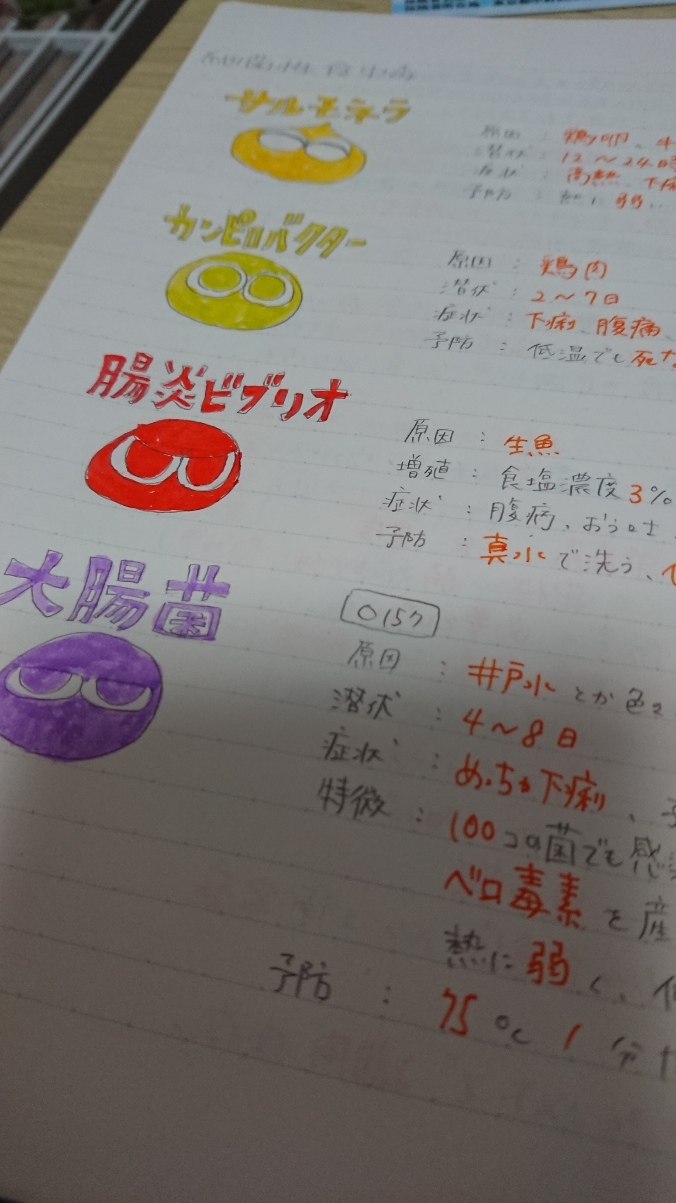 細菌性食中毒
サルモネラ
原因 : 鶏卵、
潜伏 : 12〜24時
症状 : 高熱、下
予防 : 熱に弱い
カンピロバクター
原因 : 鶏肉
潜伏 : 2〜7日
症状 : 下痢、腹痛、
予防 : 低温でも死
腸炎ビブリオ
原因 : 生魚
増殖 : 食塩濃度3%
症状 : 腹痛、おう吐、
予防 : 真水で洗う、
大腸菌
O157
原因 : 井戸水とか色々
潜伏 : 4〜8日
症状 : めっちゃ下痢、
特徴 : 100コの菌でも感
ベロ毒素を産
熱に弱く、
予防 : 75℃ 1分